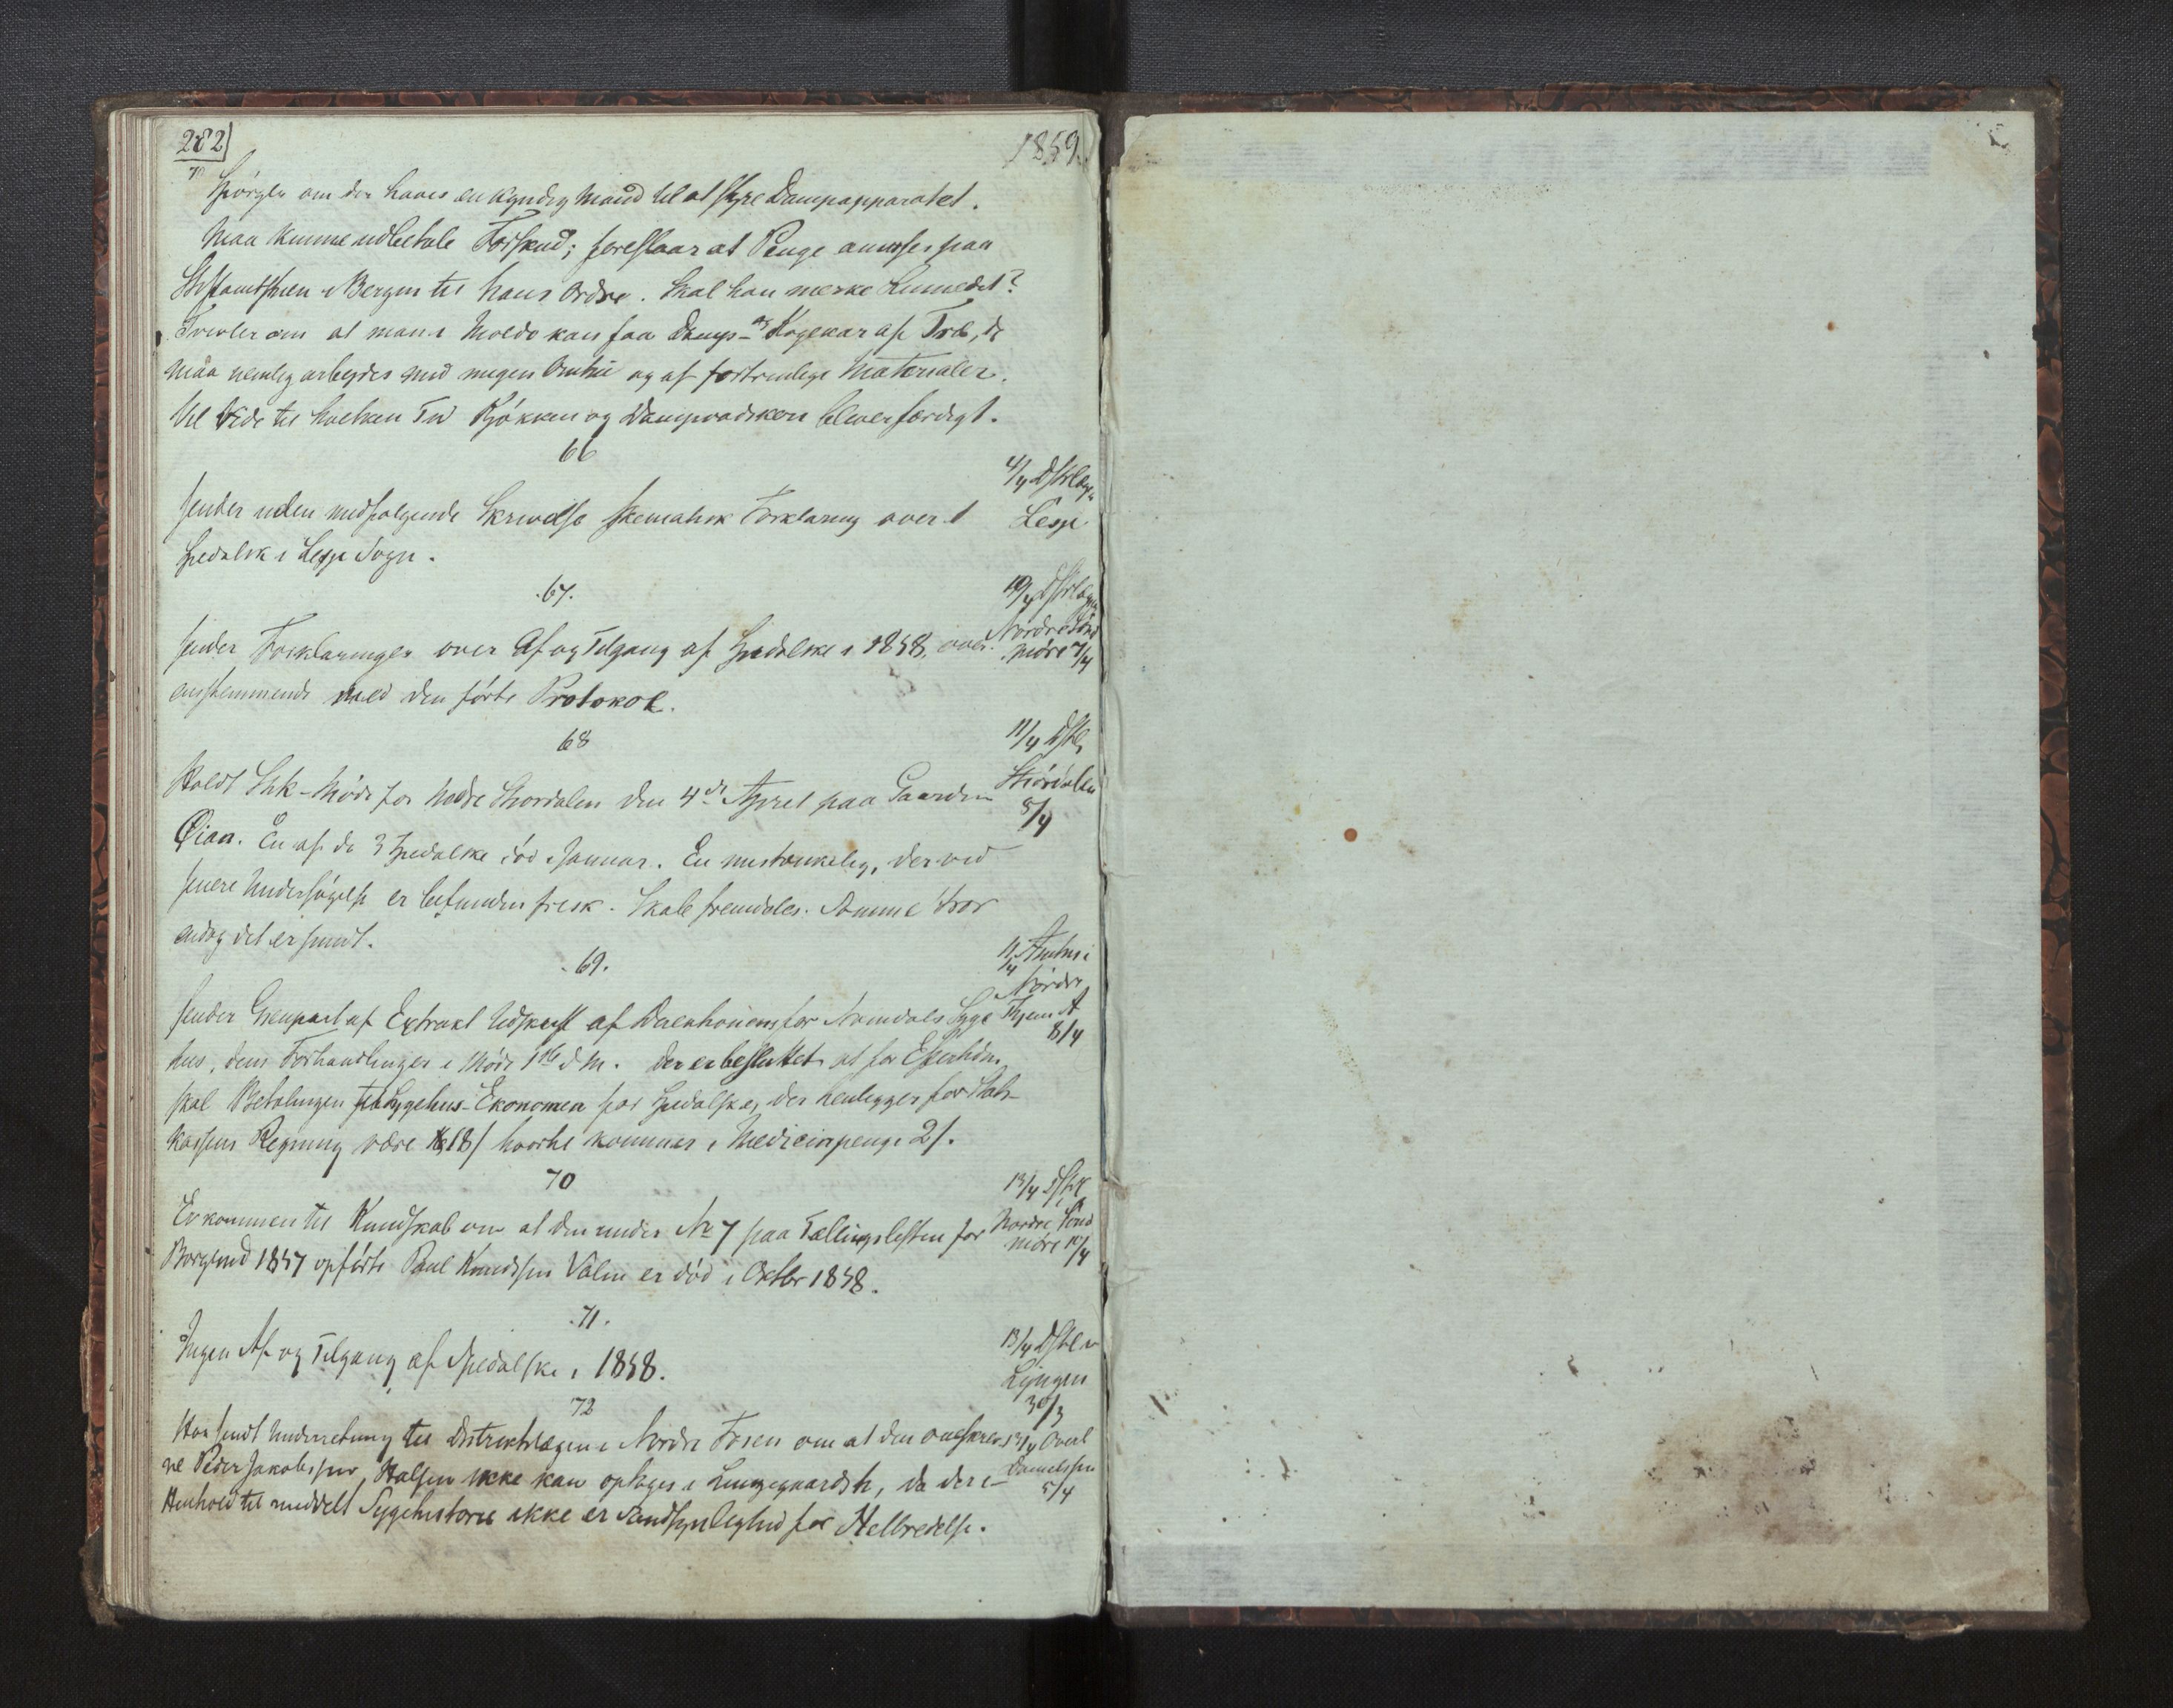 282
1859.
Spörger om der haves en kyndig Mand til at styre Dampapparatet.
Maa kunne udbetale Forskud; foreslaar at Penge anvises paa
Stiftamtstuen i Bergen til hans Ordre. Skal han merke Linnedet?
Tvivler om at man i Molde kan faa Damp- og Kogekar af Træ, de
maa nemlig arbeydes med megen Omhu og af fortrinlige Materialer.
Vil vide til hvilken Tid Kjökken og Dampvadskeri bliver færdigt.
66
Sender uden medfølgende Skrivelse skematisk Forklaring over 1
Spedalsk i Lesje Sogn.
4/4 Dstrlæg.
Lesje
67.
Sender Forklaringer over Af og Tilgang af Spedalske i 1858, over-
ensstemmende med den förte Protokol.
10/4 Dstrlægen
Nordre Sönd
möre 7/4
68
Holdt Shk-Möde for Nedre Stördalen den 4de April paa Gaarden
Öian. En af de 3 Spedalske död i Januar. En mistænkelig, der ved
senere Undersögelse er befunden frisk. Skal fremdeles. Samme tror
endog det er sundt.
11/4 Dstl.
Stördalen
8/4
69.
Sender Genpart af Extrakt Udskrift af Direktionens for Namdals Syge
hus, dens Forhandlinger i Möde 1ste d. M. Der er besluttet at for Eftertiden
skal Betalingen til Sygehus-Ekonomen for Spedalske, der henligger for Stats-
kassens Regning være 18 s hvortil kommer i Medicinpenge 2 s.
11/4 Amtm i
Nordre
Thjem A
8/4
70
Er kommen til Kundskab om at den under No 7 paa Tællingslisten for
Borgund 1857 opförte Paul Knudssen Valen er död i Oktbr 1858.
13/4 Dstl
Nordre Sönd
möre 10/4
71.
Ingen Af og Tilgang af Spedalske i 1858.
13/4 Dstl
Lyngen
30/3
72
Har sendt Underretning til Distriktslægen i Nordre Fosen om at den omskrev
ne Peder Jakobssen Halsen ikke kan optages i Lungegaardsh, da der i
Henhold til meddelt Sygehistorie ikke er Sandsynlighed for Helbredelse.
13/4 Overl
Danielssen
5/4